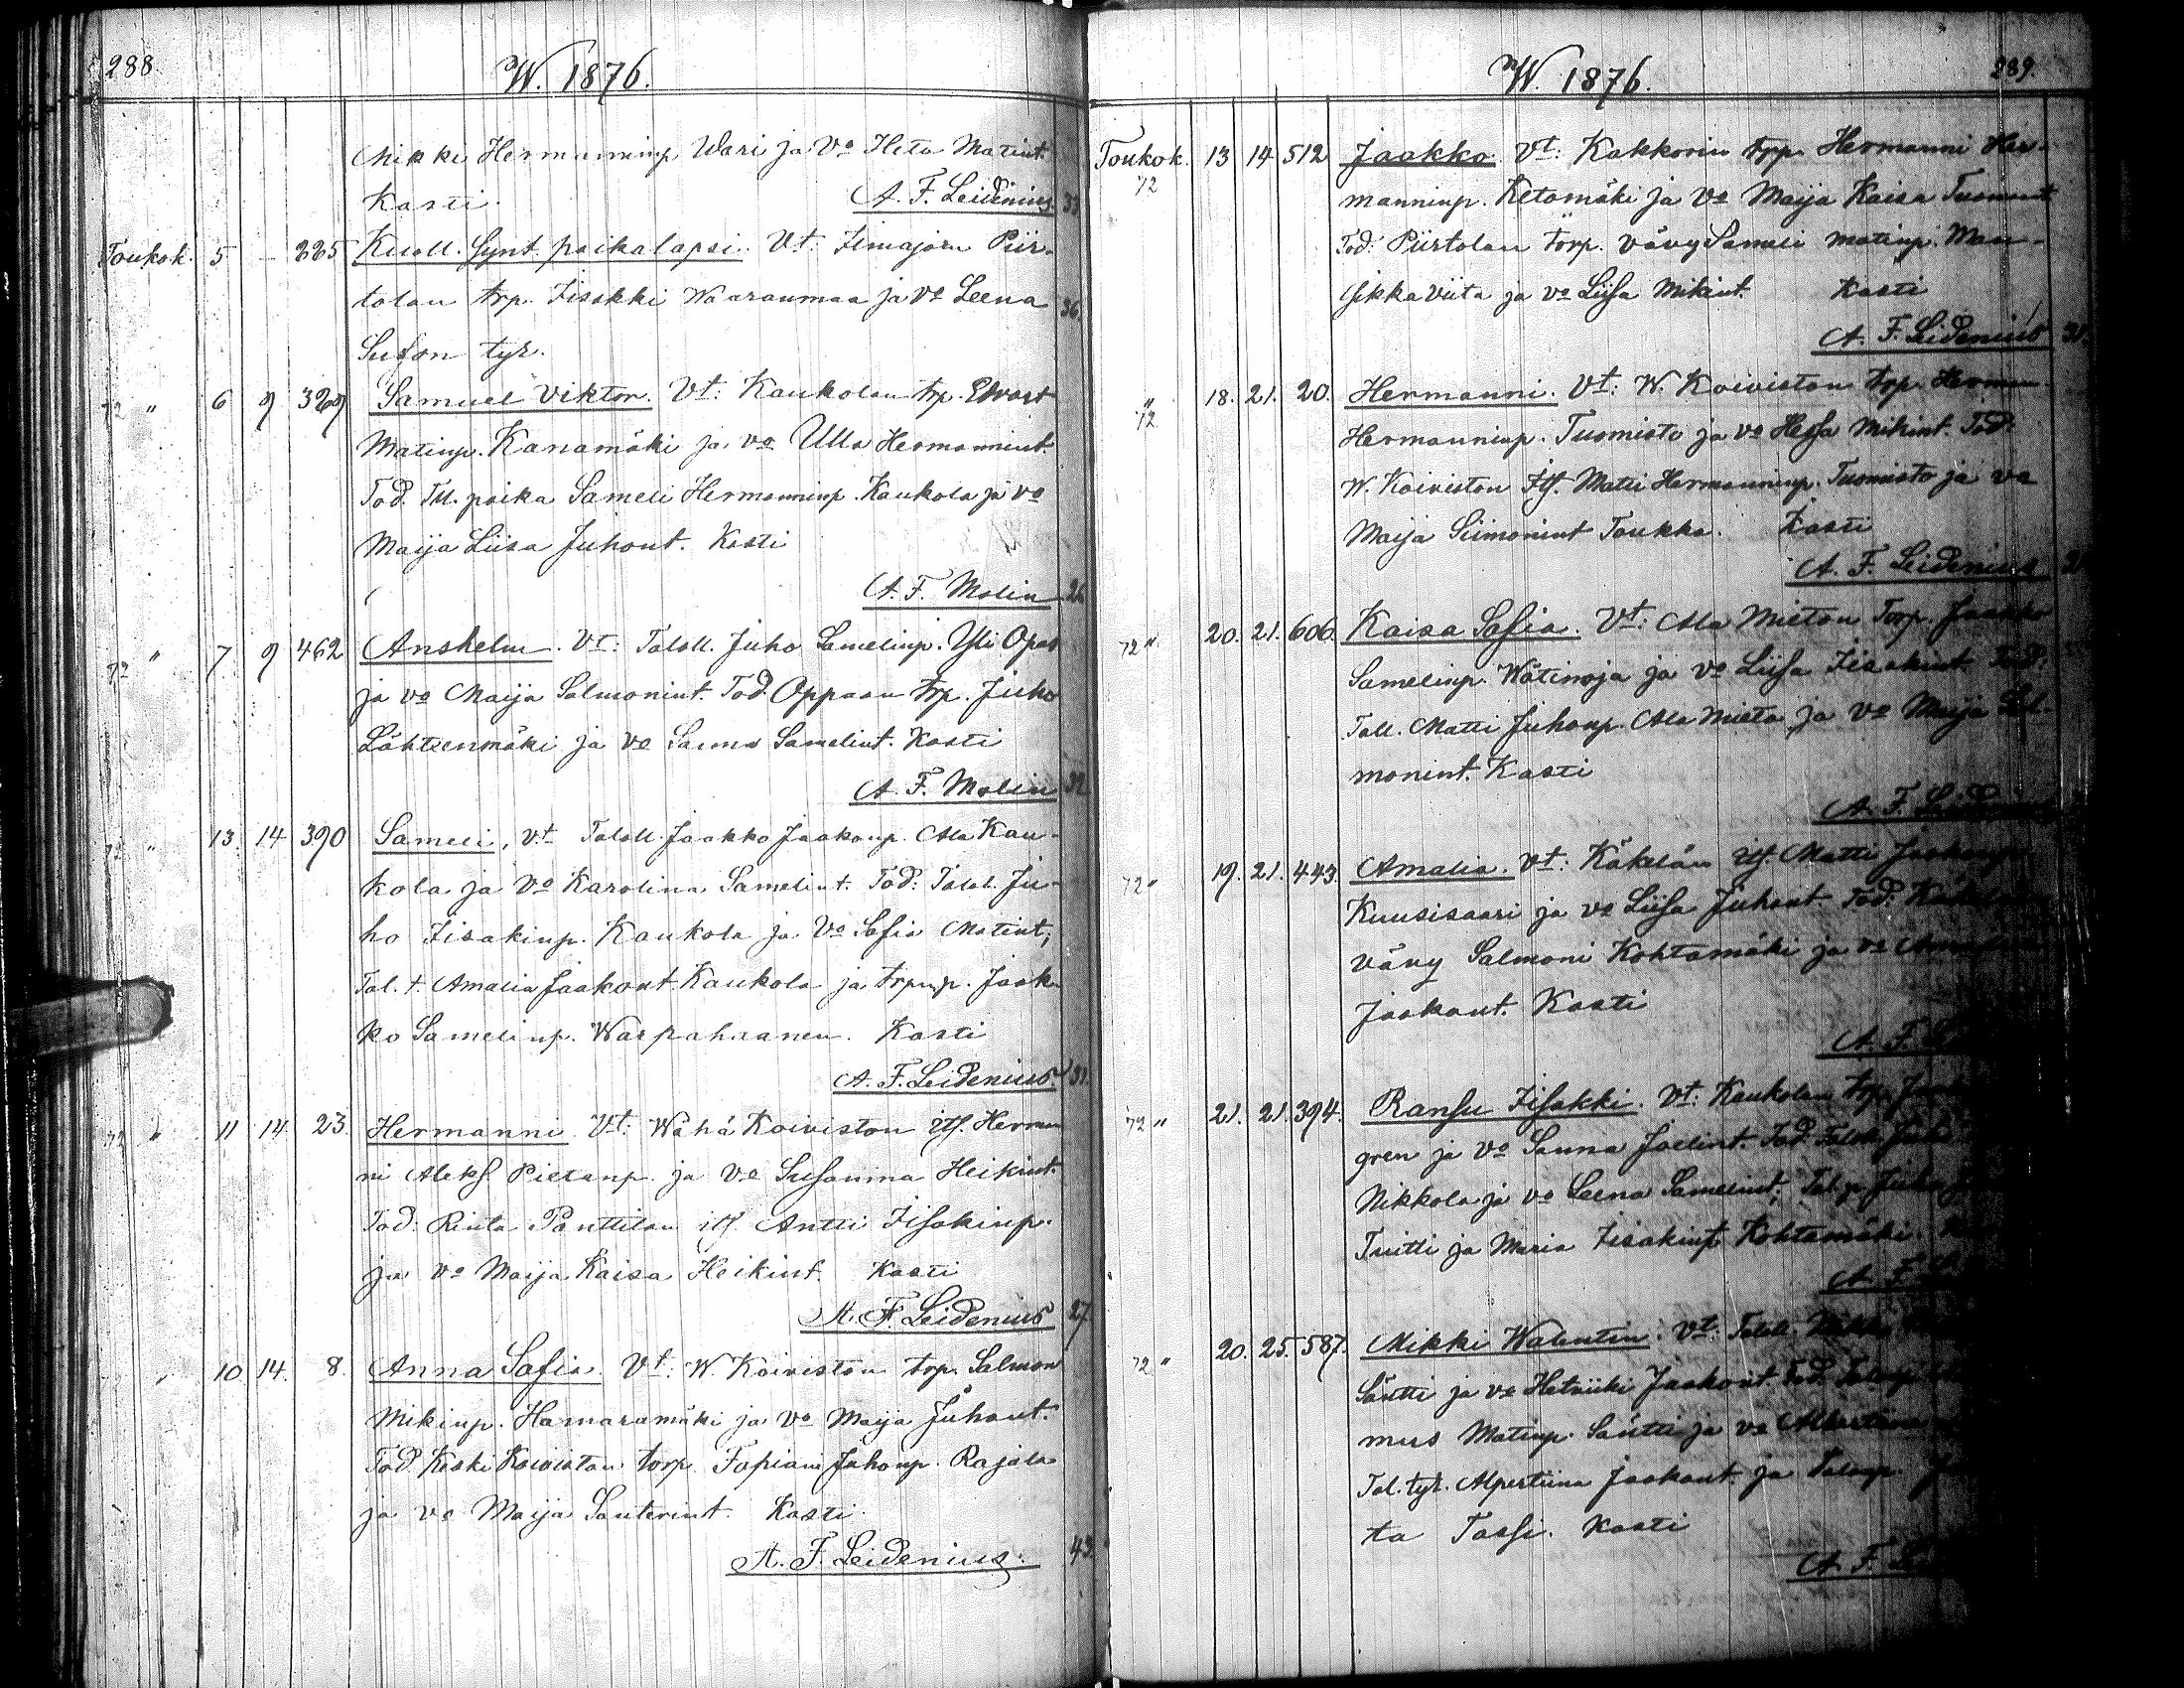 288.
W. 1876.
Mikki Hermanninp. Wari ja Vo Heta Matint.
Kasti. A. F. Leidenius 33
Toukok. 5 – 225 Kuoll. Synt. poikalapsi. Vt. Ilmajoen Piir-
tolan trp. Iisakki Waaraumaa ja Vo Leena 36.
Sufon tyr.
72 " 6 9 329 Samuel Viktor. Vt: Kaukolan trp. Edvart
Matinp. Kanamäki ja vo Ulla Hermannint.
Tod. Tal. poika Sameli Hermanninp. Kaukola ja vo
Maija Liisa Juhont. Kasti
A. F. Molin 26
72 " 7 9 462 Anshelm. Vt: Taloll. Juho Samelinp. Yli Opas
ja vo Maija Salmonint. Tod. Oppaan trp. Juho
Lähteenmäki ja vo Sanna Samelint. Kasti
A. F. Molin 32
72 " 13 14 390 Sameli, Vt. Taloll. Jaakko Jaakonp. Ala Kau-
kola ja Vo Karolina Samelint. Tod: Talol. Ju-
ho Iisakinp. Kaukola ja Vo Sofia Matint.,
Tal. t. Amalia Jaakont. Kaukola ja trpnp. Jaak-
ko Samelinp. Warpahaanen. Kasti
A. F. Leidenius. 31.
72 " 11 14 23. Hermanni Vt: Wähä Koiviston itf. Herman
ni Aleks Pietanp. ja Vo Susanna Heikint.
Tod: Rinta Panttilan itf. Antti Iisakinp.
ja vo Maija Kaisa Heikint. Kasti
A. F. Leidenius 27
10. 14. 8. Anna Sofia. Vt: W. Koiviston trp. Salmon
Mikinp. Hamaramäki ja vo Maija Juhont.
Tod. Keski Koiviston torp. Fapiani Juhonp. Rajala
ja vo Maija Santerint. Kasti.
A. F. Leidenius. 43.
W. 1876. 289.
Toukok. 13 14 512 Jaakko. Vt: Kakkorin trp. Hermanni Her-
72 manninp. Ketomäki ja Vo Maija Kaisa Tuomant.
Tod: Piirtolan torp. vävy Sameli Matinp. Man-
sikkaviita ja vo Liisa Mikint. Kasti
A. F. Leidenius 31.
" 18. 21. 20. Hermanni. Vt: W. Koiviston trp. Herman
72 Hermanninp. Tuomisto ja vo Hessa Mikint. Tod:
W. Koiviston Itf. Matti Hermanninp. Tuomisto ja vo
Maija Siimonint Toukko. Kasti
A. F. Leidenius
72 " 20. 21. 606. Kaisa Sofia. Vt: Ala Mieton Torp. Jaakko
Samelinp. Wätinoja ja vo Liisa Iisakint Tod:
Tall. Matti Juhonp. Ala Mieto ja Vo Maija Sal-
monint. Kasti
A. F.
72 " 19. 21. 443. Amalia. Vt: Käkelän itf. Matti Jaakonp
Kuusisaari ja vo Liisa Juhont Tod.
vävy Salmoni Kohtamäki ja vo
Jaakont. Kasti
A. F.
72 " 21. 21. 394. Ransu Iisakki. Vt: Kaukolan trp.
gren ja vo Sanna Joelint. Tod: Talol. Juho
Nikkola ja vo Leena Samelint., Tal. p. Juho
Tuitti ja Maria Iisakint Kohtamäki.
A. F.
72 " 20. 25. 587. Mikki Walentin. Vt: Talol. Mikki
Säntti ja vo Hetviiki Jaakont. Tod.
mus Matinp. Säntti ja vo Albertina
Tal. tyt. Alpertiina Jaakont. ja Talonp.
ta Tassi. Kasti
A. F.